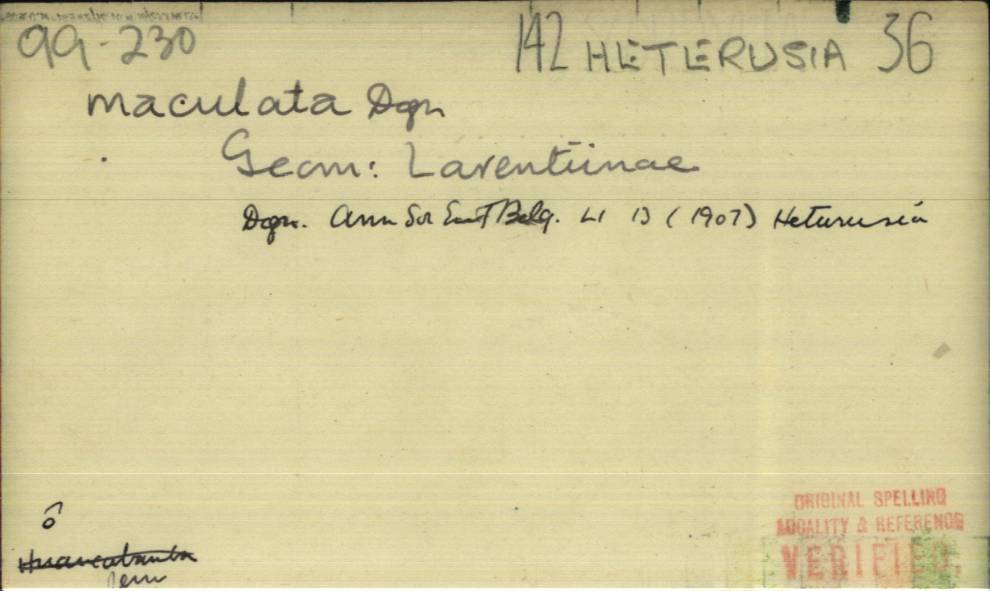 99-230 142 HETERUSIA 36
maculata Dgn
Geom: Larentiinae
Dgn. Ann Soc Ent Belg. LI 13 (1907) Heterusia
♂
Huancabamba
Peru
ORIGINAL SPELLING
LOCALITY & REFERENCE
VERIFIED.